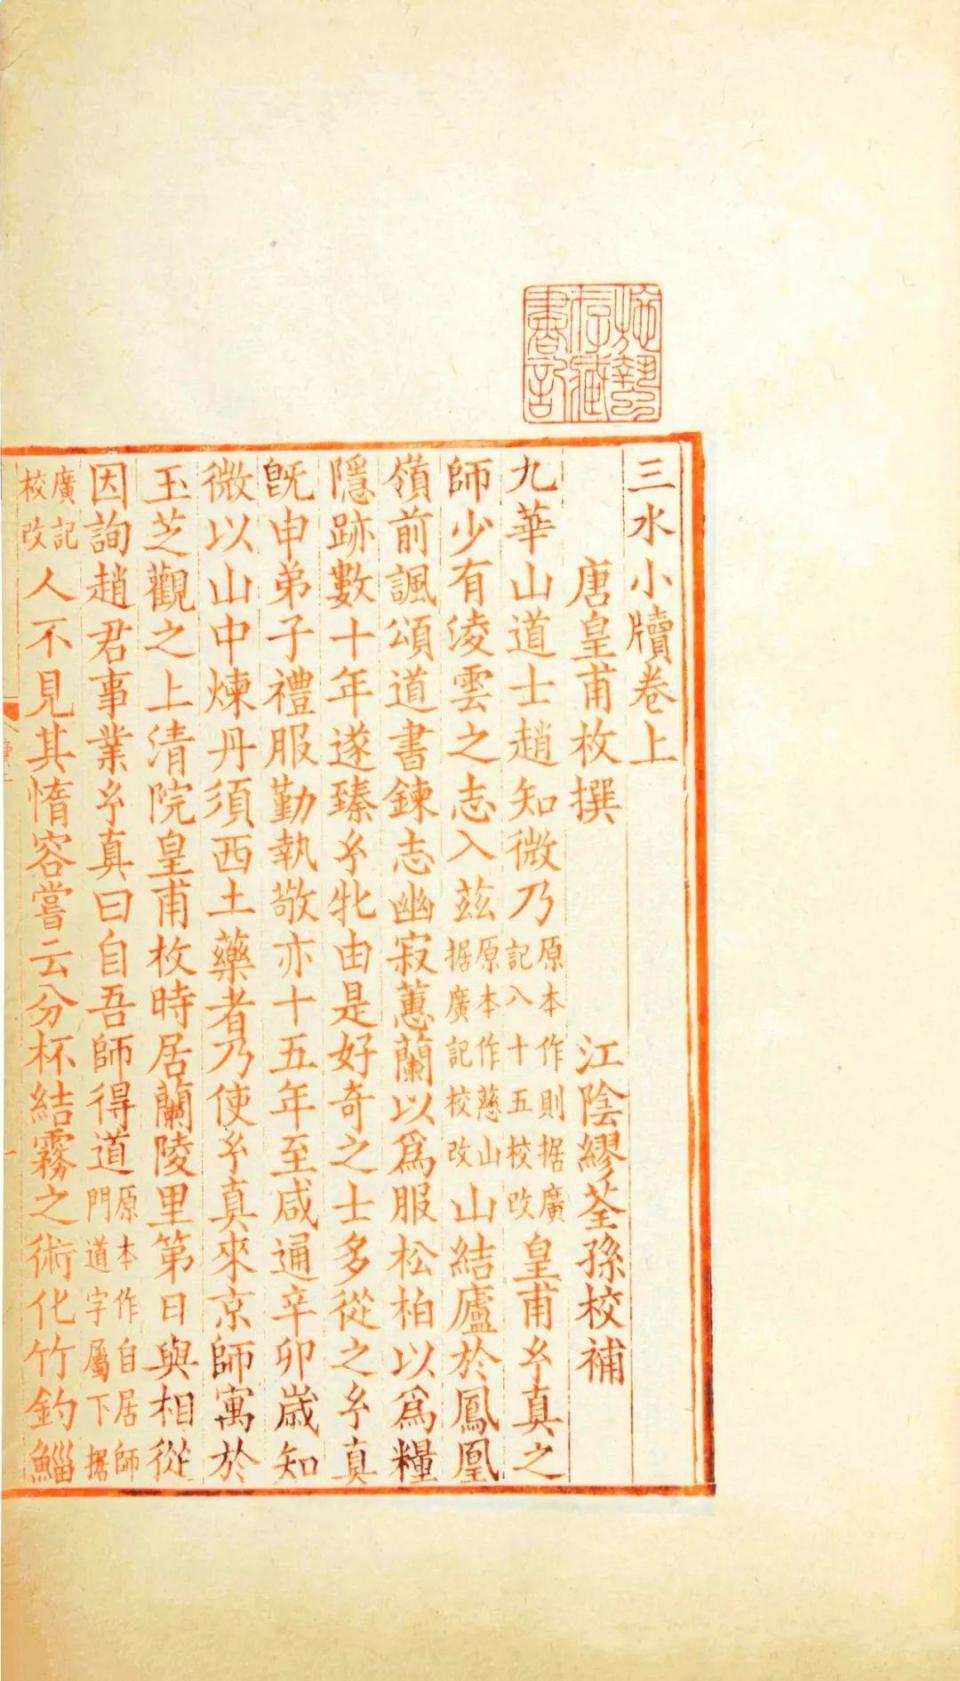 施蟄存藏書記
三水小牘卷上
唐皇甫枚撰　江陰繆荃孫校補
九華山道士趙知微乃原本作則据廣記八十五校改皇甫玄真之
師少有淩雲之志入茲原本作慈山据廣記校改山結廬於鳳凰
嶺前諷頌道書鍊志幽寂蕙蘭以爲服松柏以爲糧
隱跡數十年遂臻玄牝由是好奇之士多從之玄真
既申弟子禮服勤執敬亦十五年至咸通辛卯歲知
微以山中煉丹須西土藥者乃使玄真來京師寓於
玉芝觀之上清院皇甫枚時居蘭陵里第日與相從
因詢趙君事業玄真曰自吾師得道原本作自居師門道字屬下据
廣記校改人不見其惰容嘗云分杯結霧之術化竹釣鯔